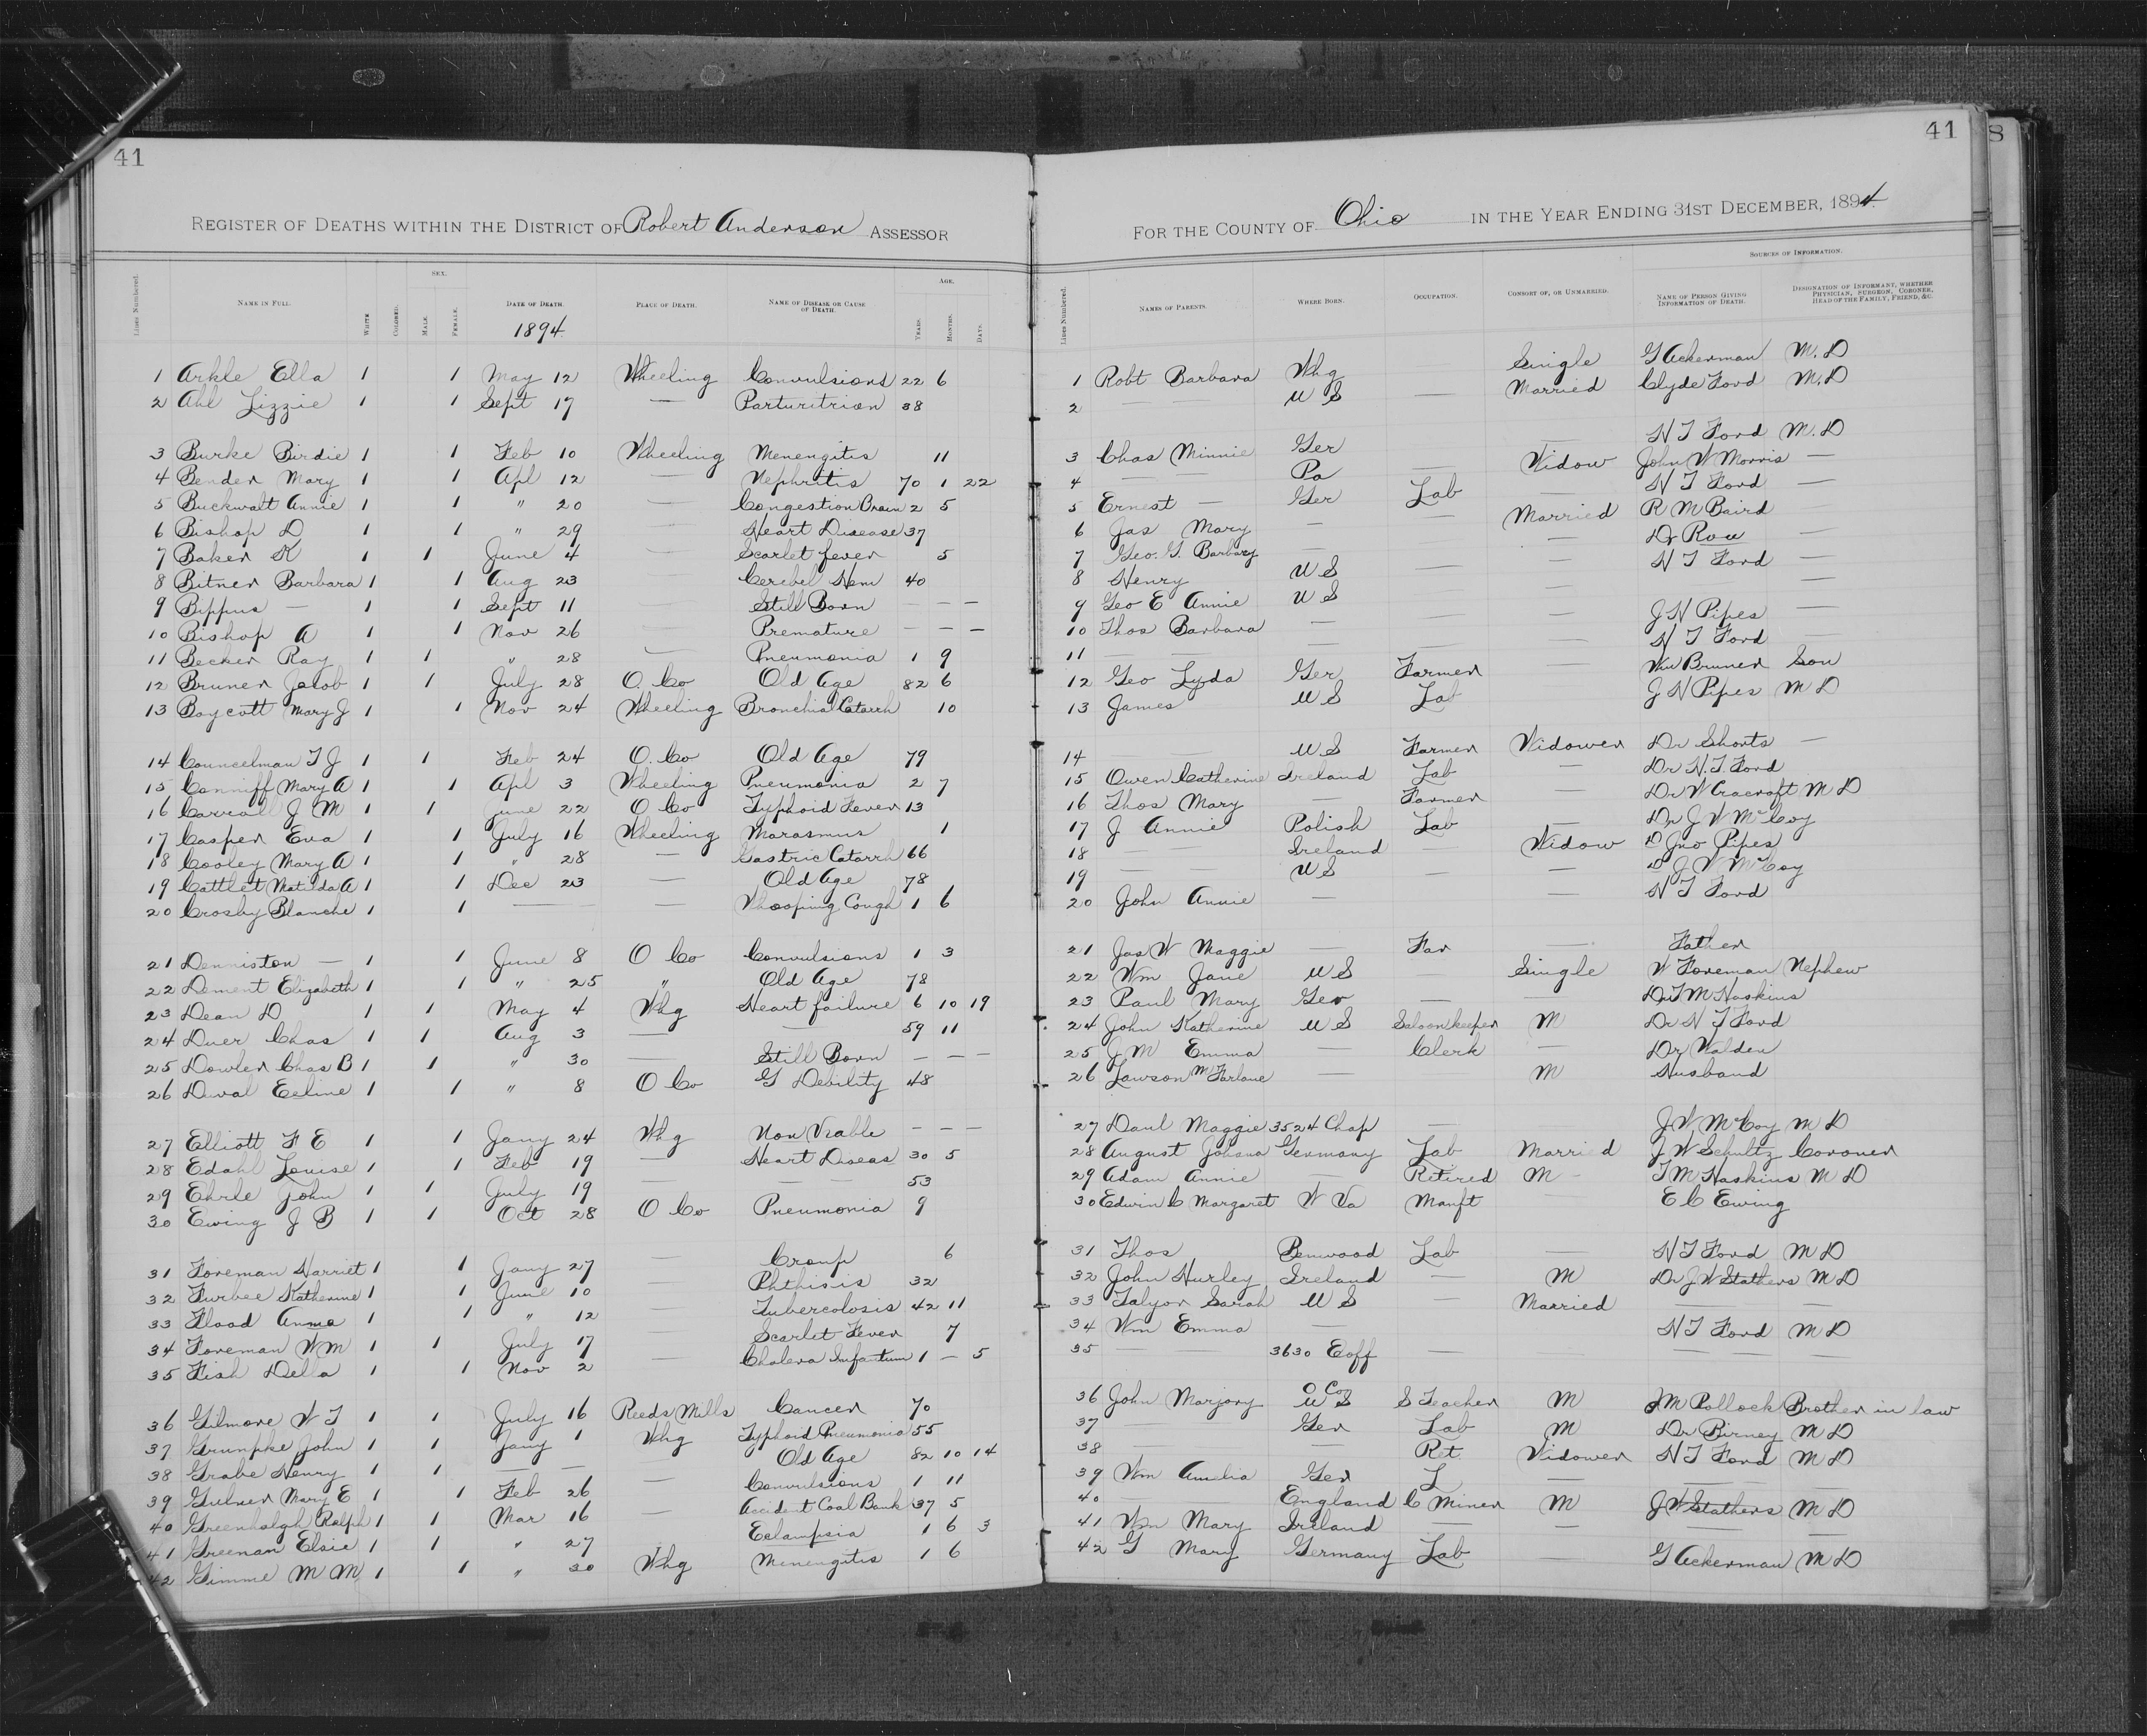 41
REGISTER OF DEATHS WITHIN THE DISTRICT OF Robert Anderson ASSESSOR
LINES NUMBERED. NAME IN FULL. WHITE COLORED. SEX. MALE. FEMALE. DATE OF DEATH. PLACE OF DEATH. NAME OF DISEASE OR CAUSE OF DEATH. AGE. YEARS. MONTHS. DAYS.
1894
1 Arkle Ella 1 1 May 12 Wheeling Convulsions 22 6
2 Ahl Lizzie 1 1 Sept 17 — Parturitrion 38
3 Burke Birdie 1 1 Feb 10 Wheeling Menengitis 11
4 Bender Mary 1 1 Apl 12 — Nephritis 70 1 22
5 Buckwalt Annie 1 1 " 20 — Congestion Brain 2 5
6 Bishop D 1 1 " 29 — Heart Disease 37
7 Baker K 1 1 June 4 — Scarlet fever 5
8 Bitner Barbara 1 1 Aug 23 Cerebel Hem 40
9 Bippus — 1 1 Sept 11 Still Born — —
10 Bishop A 1 1 Nov 26 — Premature — — —
11 Becker Ray 1 1 " 28 — Pneumonia 1 9
12 Bruner Jacob 1 1 July 28 O. Co Old Age 82 6
13 Boycott Mary J 1 1 Nov 24 Wheeling Bronchial Catarrh 10
14 Councelman T J 1 1 Feb 24 O. Co Old Age 79
15 Canniff Mary A 1 1 Apl 3 Wheeling Pneumonia 2 7
16 Carroll J M 1 1 June 22 O Co Typhoid Fever 13
17 Casper Eva 1 1 July 16 Wheeling Marasmus 1
18 Cooley Mary A 1 1 " 28 — Gastric Catarrh 66
19 Cattlet Matilda A 1 1 Dec 23 — Old Age 78
20 Crosby Blanche 1 1 — — Whooping Cough 1 6
21 Denniston — 1 1 June 8 O Co Convulsions 1 3
22 Dement Elizabeth 1 1 " 25 " Old Age 78
23 Dean D 1 1 May 4 Whg Heart failure 6 10 19
24 Duer Chas 1 1 Aug 3 — — 59 11
25 Dowler Chas B 1 1 " 30 — Still Born — — —
26 Duval Eeline 1 1 " 8 O Co G Debility 48
27 Elliott F E 1 1 Jany 24 Whg Non Viable — — —
28 Edahl Louise 1 1 Feb 19 — Heart Diseas 30 5
29 Ehrle John 1 1 July 19 — — — 53
30 Ewing J B 1 1 Oct 28 O Co Pneumonia 9
31 Foreman Harriet 1 1 Jany 27 — Croup 6
32 Furbee Katherine 1 1 June 10 — Phthisis 32
33 Flood Anma 1 1 " 12 — Tubercolosis 42 11
34 Foreman Wm 1 1 July 17 — Scarlet Fever 7
35 Fish Della 1 1 Nov 2 — Cholera Infantum 1 — 5
36 Gilmore W T 1 1 July 16 Reeds Mills Cancer 70
37 Grumpke John 1 1 Jany 1 Whg Typhoid Pneumonia 55
38 Grabe Henry 1 1 — — — Old Age 82 10 14
39 Gulner Mary E 1 1 Feb 26 — Convulsions 1 11
40 Greenhalgh Ralph 1 1 Mar 16 — Accident Coal Bank 37 5
41 Greenan Elsie 1 1 " 27 Eclampsia 1 6 3
42 Gimme M M 1 1 " 30 Whg Menengitis 1 6
41
8
FOR THE COUNTY OF Ohio IN THE YEAR ENDING 31ST DECEMBER, 1894
LINES NUMBERED. NAMES OF PARENTS. WHERE BORN. OCCUPATION. CONSORT OF, OR UNMARRIED. SOURCES OF INFORMATION. NAME OF PERSON GIVING INFORMATION OF DEATH. DESIGNATION OF INFORMANT, WHETHER PHYSICIAN, SURGEON, CORONER, HEAD OF THE FAMILY, FRIEND, &C.
1 Robt Barbara Whg Single G Ackerman M. D
2 — — U S — Married Clyde Ford M. D
3 Chas Minnie Ger — H T Ford M. D
4 — Pa — Widow John W Morris —
5 Ernest — Ger Lab — H T Ford —
6 Jas Mary — — Married R M Baird —
7 Geo. G. Barbary — — Dr Row —
8 Henry U S — — H T Ford —
9 Geo E Annie U S — — —
10 Thos Barbara — — J H Pipes —
11 — — — H T Ford —
12 Geo Lyda Ger Farmer — Wm Bruner Son
13 James U S Lab J H Pipes M D
14 — U S Farmer Widower Dr Shorts —
15 Owen Catherine Ireland Lab — Dr H. T. Ford
16 Thos Mary — Farmer — Dr W Cracraft M D
17 J Annie Polish Lab — Dr J W McCoy
18 — — Ireland — Widow D Jno Pipes
19 — — U S — — D J W McCoy
20 John Annie — — H T Ford
21 Jas W Maggie — Far — Father
22 Wm Jane U S — Single W Foreman Nephew
23 Paul Mary Geo — Dr T M Haskins
24 John Katherine U S Saloonkeeper M Dr H T Ford
25 J M Emma — Clerk — Dr Walden
26 Lawson McFarlane — M Husband
27 Danl Maggie 3524 Chap — J W McCoy M D
28 August Johana Germany Lab Married J W Schultz Coroner
29 Adam Annie — Retired M — T M Haskins M D
30 Edwin C Margaret W Va Manft — E C Ewing
31 Thos Benwood Lab — H T Ford M D
32 John Hurley Ireland — M Dr J W Stathers M D
33 Talyor Sarah U S — Married — —
34 Wm Emma — H T Ford M D
35 — — 3630 Eoff — — — —
36 John Marjory O Co U S S Teacher M J M Pollock Brother in law
37 Ger Lab M Dr Birney M D
38 — — Ret Widower H T Ford M D
39 Wm Amelia Ger L — — —
40 — England C Miner M J W Stathers M D
41 Wm Mary Ireland — — — —
42 G Mary Germany Lab — G Ackerman M D